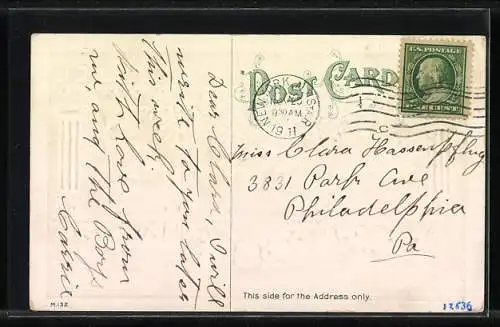 POST CARD
U.S. POSTAGE
NEW YORK
930 AM
1911
Dear Clara, I will
write to you later
this week.
With Love from
me, and the Boys
Carrie
Miss Clara Hassenpflug
3831 Park Ave
Philadelphia
Pa
This side for the Address only.
M.132
12536